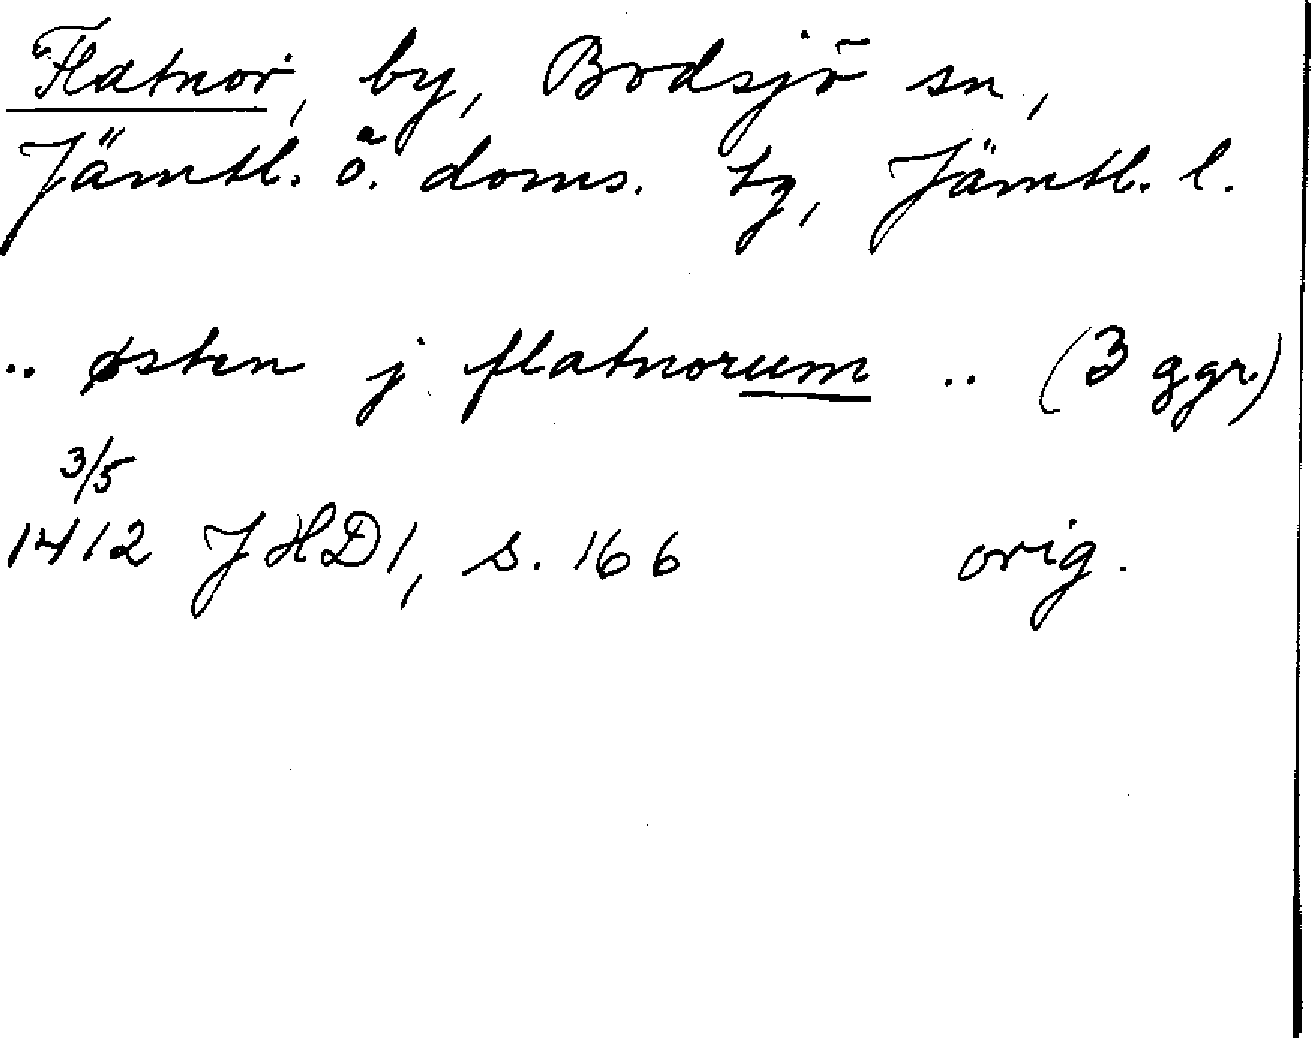 Flatnor, by, Bodsjö sn,
Jämtl. ö. doms. tg, Jämtl. l.
.. østen j flatnorum .. (3 ggr)
3/5
1412 JHD1, s. 166 orig.